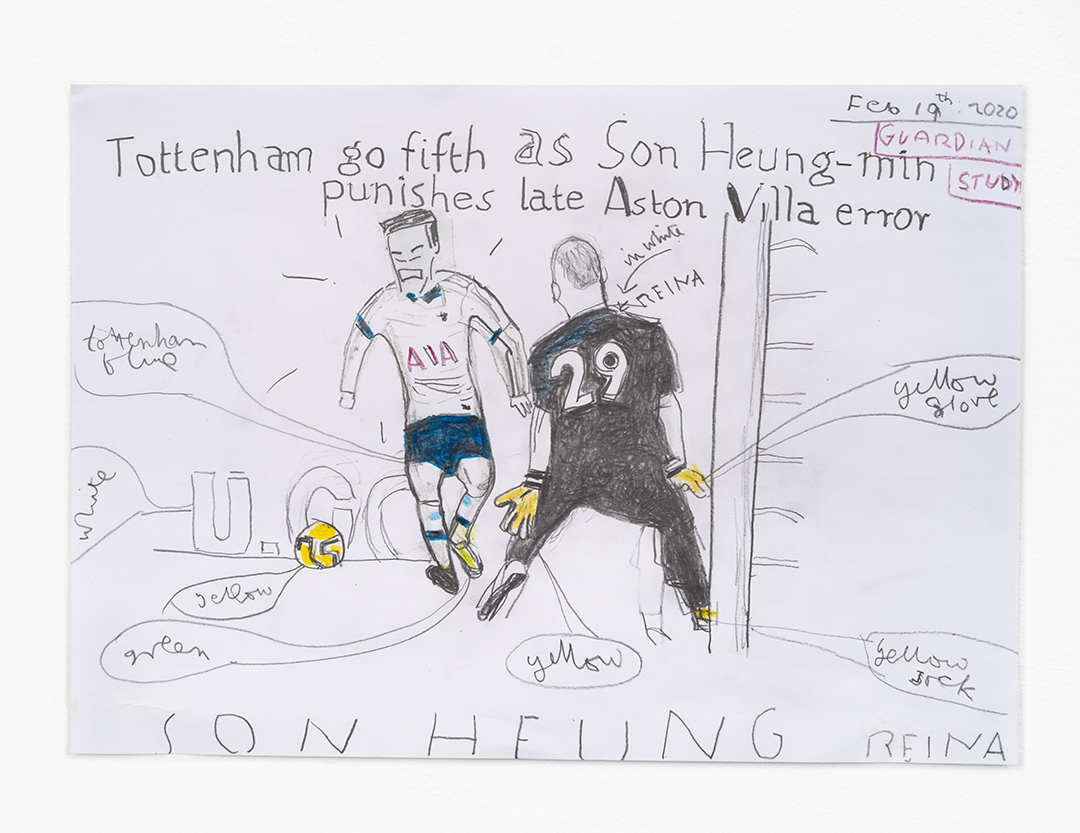 Feb 19th. 2020
GUARDIAN
STUDY
Tottenham go fifth as Son Heung-min
punishes late Aston Villa error
in white
REINA
tottenham
blue
AIA
29
yellow
glove
white
U.CO
yellow
green
yellow
yellow
sock
SON HEUNG REINA